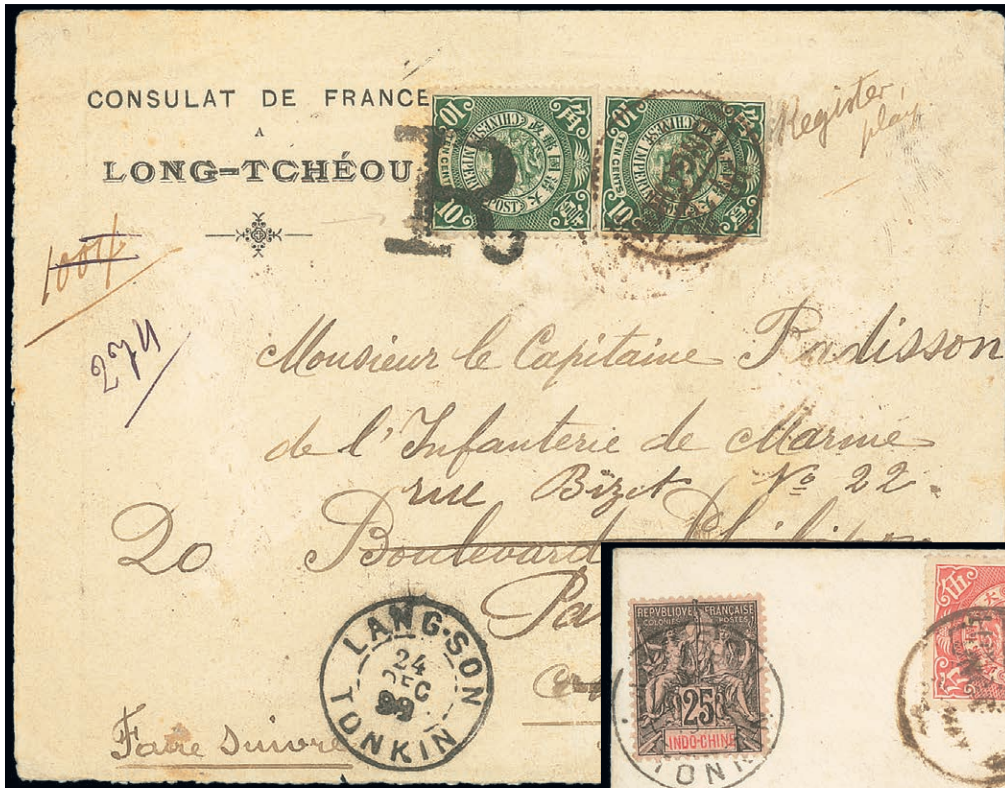 CONSULAT DE FRANCE
A
LONG-TCHÉOU
Register,
10
10
CHINESE IMPERIAL POST
TEN CENTS
10
10
CHINESE IMPERIAL POST
TEN CENTS
R
274
Monsieur le Capitaine Radisson
de l'Infanterie de Marine
rue Bizet No 22.
20 Boulevard
Pa
LANG-SON
24
DEC
99
TONKIN
Faire Suivre
REPUBLIQUE FRANÇAISE
COLONIES POSTES
25
INDO-CHINE
伍